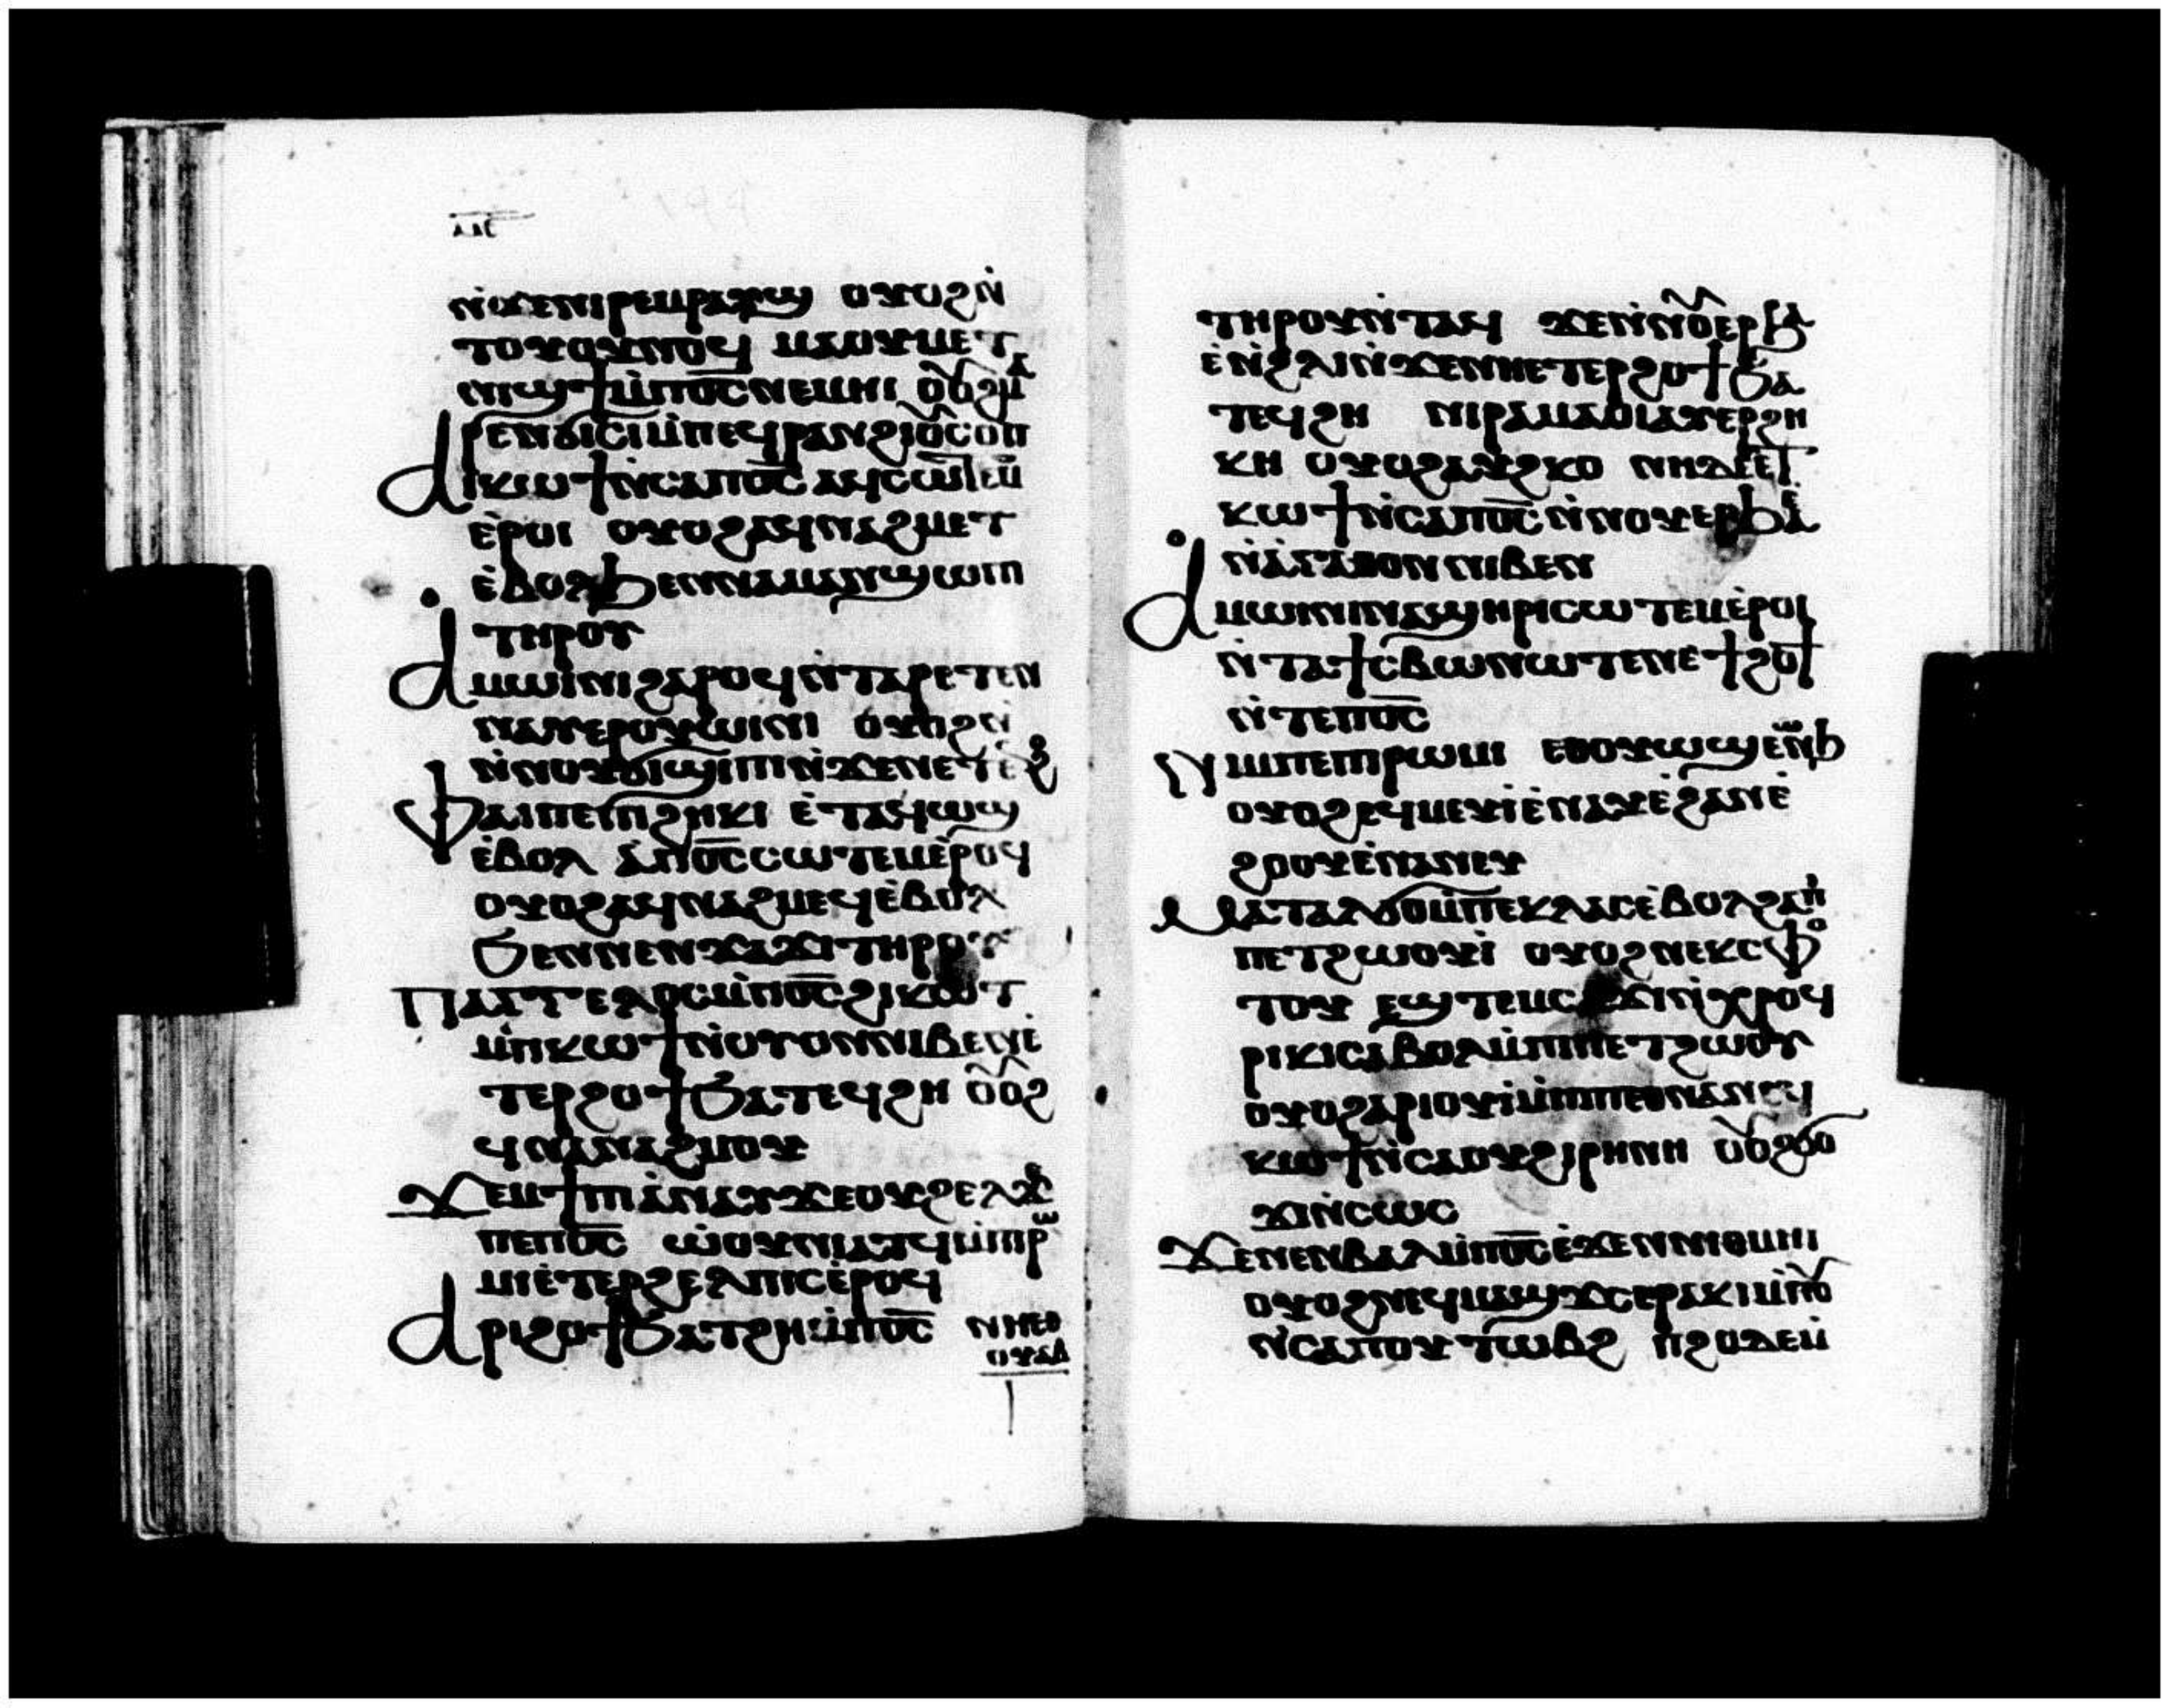 ⲛ̇ϫⲉⲛⲓⲣⲉⲙⲣⲁⲩϣ ⲟⲩⲟϩⲛ̇
ⲧⲟⲩⲟⲩⲛⲟϥ ⲙⲁⲟⲩⲙⲉⲧ
ⲛⲓϣϯⲙ̇ⲡⲟ̅ⲥ̅ⲛⲉⲙⲏⲓ
ⲣⲉⲛϭⲓⲥⲓⲙ̇ⲡⲉϥⲣⲁⲛϩⲓⲟⲩⲥⲟⲡ
ⲁⲓⲕⲱϯⲛ̇ⲥⲁⲡⲟ̅ⲥ̅ ⲁϥⲥⲱⲧⲉⲙ
ⲉ̇ⲣⲟⲓ ⲟⲩⲟϩⲁϥⲛⲁϩⲙⲉⲧ
ⲉ̇ⲃⲟⲗϧⲉⲛⲛⲁⲙⲁⲛϣⲱⲡ
ⲧⲏⲣⲟⲩ
ⲁⲙⲱⲓⲛⲓϩⲁⲣⲟϥⲛ̇ⲧⲁⲣⲉⲧⲉⲛ
ⲛⲁⲩⲉⲣⲟⲩⲱⲓⲛⲓ ⲟⲩⲟϩⲛ̇
ⲛ̇ⲛⲟⲩϭⲓϣⲓⲡⲓⲛ̇ϫⲉⲛⲉⲧⲉⲛϩⲟ
ⲫⲁⲓⲡⲉⲧⲡϩⲏⲕⲓ ⲉ̇ⲧⲁϥⲱϣ
ⲉ̇ⲃⲟⲗ ⲁ̇ⲡⲟ̅ⲥ̅ⲥⲱⲧⲉⲙⲉ̇ⲣⲟϥ
ⲟⲩⲟϩⲁϥⲛⲁϩⲙⲉϥⲉ̇ⲃⲟⲗ
ϧⲉⲛⲛⲉⲛϫⲁϫⲓⲧⲏⲣⲟⲩ
ⲡⲁⲅⲅⲉⲗⲟⲥⲙ̇ⲡⲟ̅ⲥ̅ϩⲓⲕⲱⲧ
ⲙ̇ⲡⲕⲱϯⲛ̇ⲟⲩⲟⲛⲛⲓⲃⲉⲛⲉ̇
ⲧⲉⲣϩⲟϯϧⲁⲧⲉϥϩⲏ ⲟⲩⲟϩ
ϥⲛⲁⲛⲁϩⲙⲟⲩ
ϫⲉⲙϯⲡⲓⲁ̇ⲛⲁⲩϫⲉⲟⲩϩⲉⲗϫⲉ
ⲡⲉⲡⲟ̅ⲥ̅ ⲱ̇ⲟⲩⲛⲓⲁⲧϥⲙ̇ⲡⲣⲱ
ⲙⲓⲉ̇ⲧⲉⲣϩⲉⲗⲡⲓⲥⲉ̇ⲣⲟϥ
ⲁⲣⲓϩⲟϯϧⲁⲧϩⲏⲙ̇ⲡⲟ̅ⲥ̅ ⲛⲏⲉⲑ
ⲟⲩⲁⲃ
ⲧⲏⲣⲟⲩⲛ̇ⲧⲁϥ ϫⲉⲛ̇ⲛⲟⲩⲉⲣϧⲁ
ⲉ̇ⲛ̇ϩⲗⲓⲛ̇ϫⲉⲛⲏⲉⲧⲉⲣϩⲟϯϧⲁ
ⲧⲉϥϩⲏ ⲛⲓⲣⲁⲙⲁⲟⲓⲁⲩⲉⲣϩⲏ
ⲕⲏ ⲟⲩⲟϩⲁⲩϩⲕⲟ ⲛⲏⲇⲉⲉⲧ
ⲕⲱϯⲛ̇ⲥⲁⲡⲟ̅ⲥ̅ⲛ̇ⲛⲟⲩⲉⲣϧⲁⲉ̇
ⲛ̇ⲁ̇ⲅⲁⲑⲟⲛⲛⲓⲃⲉⲛ
ⲁⲙⲱⲓⲛⲓⲛⲁϣⲏⲣⲓⲥⲱⲧⲉⲙⲉ̇ⲣⲟⲓ
ⲛ̇ⲧⲁϯⲥⲃⲱⲛⲱⲧⲉⲛⲉ̇ϯϩⲟϯ
ⲛ̇ⲧⲉⲡⲟ̅ⲥ̅
ⲛⲓⲙⲡⲉⲡⲓⲣⲱⲙⲓ ⲉⲑⲟⲩⲱϣⲉ̇ⲱⲛϧ
ⲟⲩⲟϩⲉϥⲙⲉⲩⲓⲉ̇ⲛⲁⲩⲉ̇ϩⲁⲛⲉ̇
ϩⲟⲟⲩⲉ̇ⲛⲁⲛⲉⲩ
ⲙⲁⲧⲁⲗϭⲟⲙ̇ⲡⲉⲕⲗⲁⲥⲉ̇ⲃⲟⲗϩⲁⲡ̇
ⲡⲉⲧϩⲱⲟⲩⲓ̇ ⲟⲩⲟϩⲛⲉⲕⲥⲫⲟ
ⲧⲟⲩ ⲉϣⲧⲉⲙⲥⲁϫⲓⲛ̇ⲭⲣⲟϥ
ⲣⲓⲕⲓⲥⲁⲃⲟⲗⲙ̇ⲡⲓⲡⲉⲧϩⲱⲟⲩ
ⲟⲩⲟϩⲁⲣⲓⲟⲩⲓ̇ⲙ̇ⲡⲓⲡⲉⲑⲛⲁⲛⲉϥ
ⲕⲱϯⲛ̇ⲥⲁⲟⲩϩⲓⲣⲏⲛⲏ ⲟⲩⲟϩϭⲟ
ϫⲓⲛ̇ⲥⲱⲥ
ϫⲉⲛⲉⲛⲃⲁⲗⲙ̇ⲡⲟ̅ⲥ̅ⲉ̇ϫⲉⲛⲛⲓⲑⲙⲏⲓ
ⲟⲩⲟϩⲛⲉϥⲙⲁϣϫⲥⲉⲣⲁⲕⲓⲙ̇ⲙⲟ
ⲛ̇ⲥⲁⲡⲟⲩⲧⲱⲃϩ ⲡϩⲟⲇⲉⲙ̇